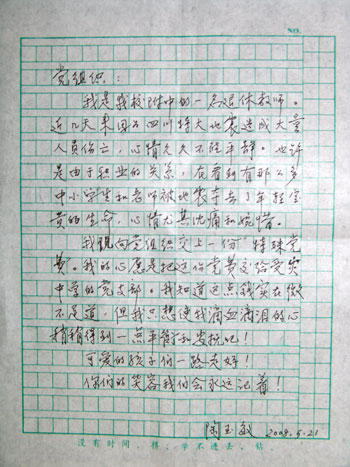 NO.
党组织：
我是我校附中的一名退休教师。
近几天来因为四川特大地震造成大量
人员伤亡，心情久久不能平静。也许
是由于职业的关系，在看到有那么多
中小学生和老师被地震夺去了年轻宝
贵的生命，心情尤其沈痛和惋惜。
我现向党组织交上一份“特殊党
费”。我的心愿是把这份党费交给受灾
中学的党支部。我知道这点钱实在微
不足道，但我只想使我滴血滴泪的心
稍稍得到一点平静和安抚吧！
可爱的孩子们一路走好！
你们的笑容我们会永远记着！
陶玉敏 2008.5.21
没有时间，挤，学不进去，钻